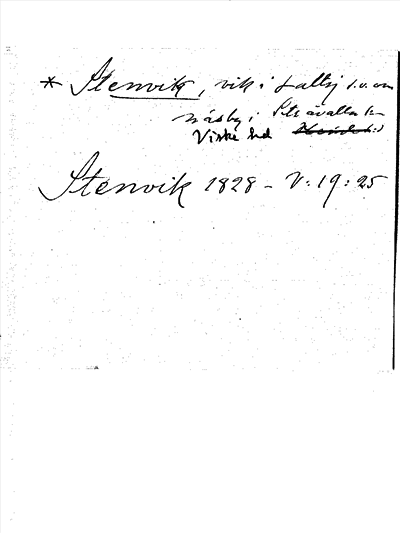 * Stenvik, vik i saltsj s.v. om
Näsby i Stråvalla sn
Viske hd
Stenvik 1828 - V: 19: 25